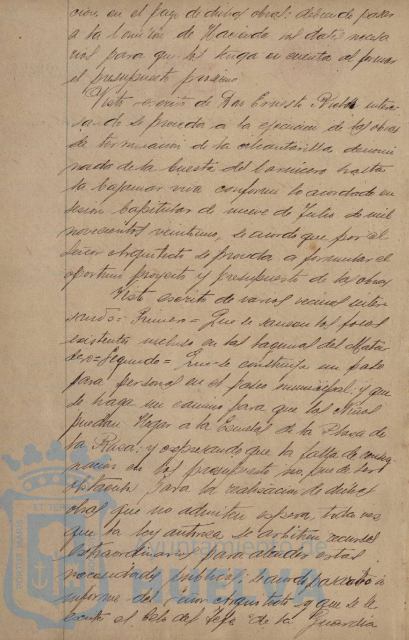 ción, en el pago de dichas obras: debiendo pasar
a la Comisión de Hacienda los datos necesa
rios para que los tenga en cuenta al formar
el presupuesto próximo
Visto escrito de Don Ernesto intere
sando se proceda a la ejecución de las obras
de terminación de la alcantarilla denomi
nada de la Cuesta del Carnicero hasta
la bajamar viva conforme lo acordado en
sesión Capitular de nueve de Julio de mil
novecientos veintiuno, se acordó que por el
Señor Arquitecto se proceda a formular el
oportuno proyecto y presupuesto de las obras
Visto escrito de varios vecinos intere
sando= Primero= Que se sanean los focos
existentes incluso en las lagunas del Mata
dero= Segundo= Que se construya un paso
para personal en el paseo municipal: y que
se haga un camino para que los niños
puedan llegar a la Escuela de la Plaza de
la y esperando que la falta de consig
nación en los presupuestos no puede ser
obstáculo para la realización de dichas
obras que no admiten espera, toda vez
que la ley autoriza se arbitren recursos
extraordinarios para atender estas
necesidades públicas; se acordó pasarlo a
informe del Señor Arquitecto y que se le
el celo del Jefe de la Guardia
Ayuntamiento de
HUELVA
PORTUS MARIS